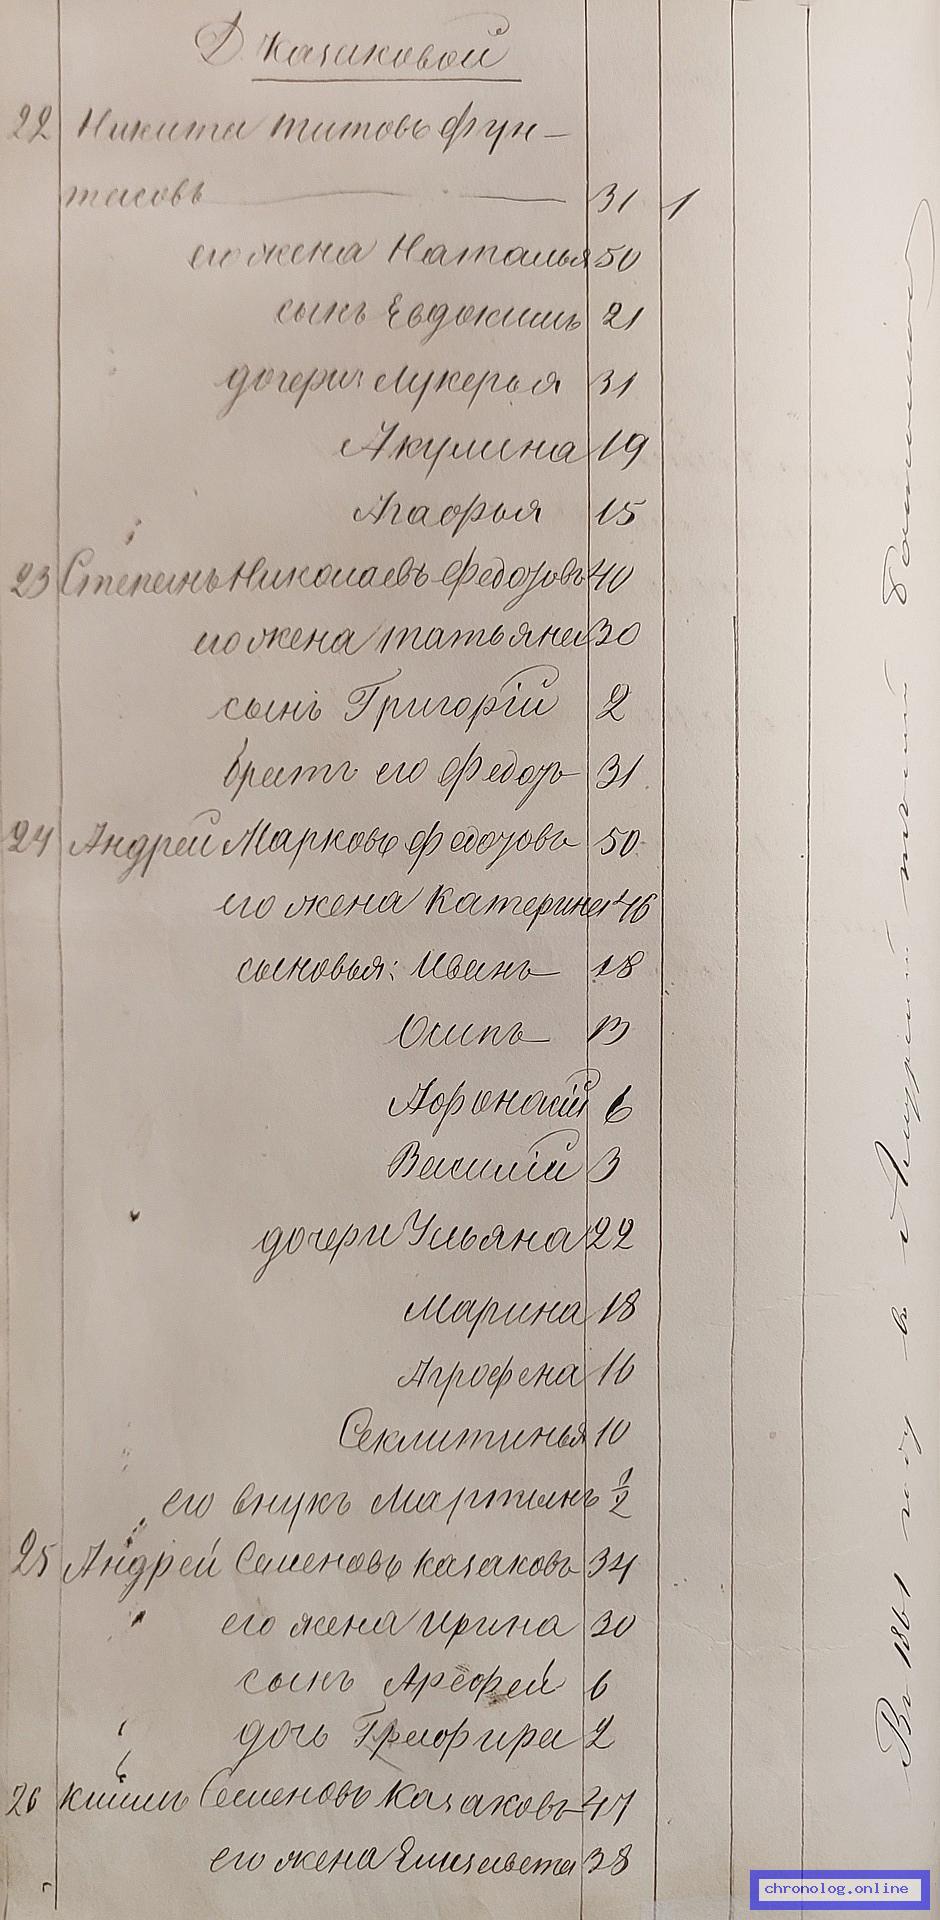 Д. Казаковой
22 Никита Титовъ Фун-
тасовъ 31 1
его жена Наталья 50
сынъ Евдокимъ 21
дочери: Лукерья 31
Акулина 19
Агафья 15
23 Степанъ Николаевъ Федотовъ 40
его жена Татьяна 30
сынъ Григорій 2
братъ его Федотъ 31
24 Андрей Марковъ Федотовъ 50
его жена Катерина 46
сыновья: Иванъ 18
Осипъ 13
Афонасій 6
Василій 3
дочери Ульяна 22
Марина 18
Агрофена 16
Секлитинья 10
его внукъ Мартинъ 1/2
25 Андрей Семеновъ Казаковъ 34
его жена Ирина 30
сынъ Арефей 6
дочь Глафира 2
26 Климъ Семеновъ Казаковъ 47
его жена Елизавета 38
Въ 1861 году въ Амурскій пѣшій баталіонъ
chronolog.online